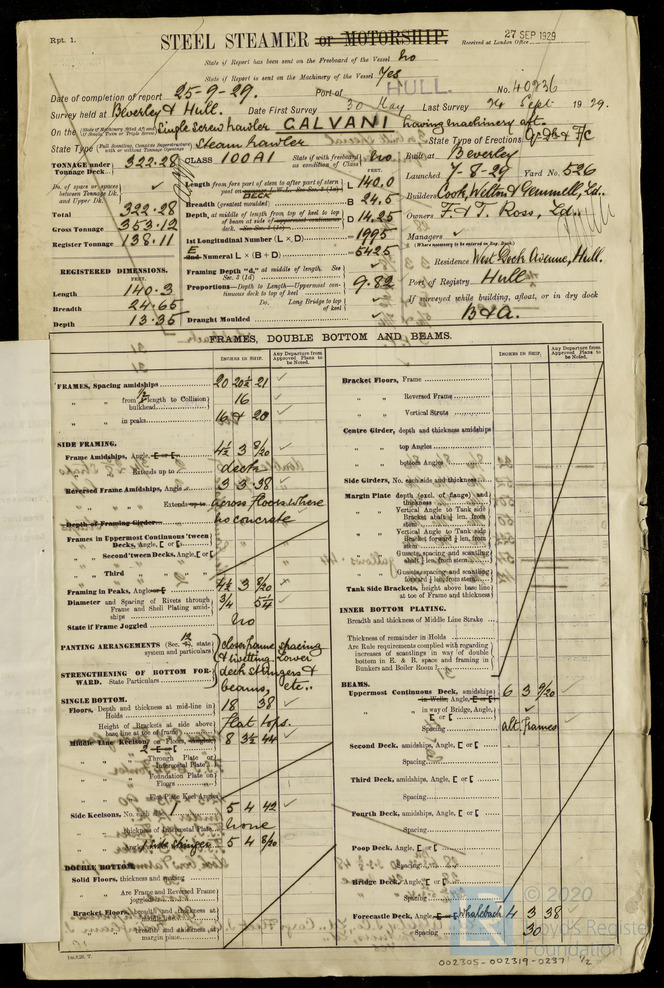 Rpt. 1.
STEEL STEAMER or MOTORSHIP.
Received at London Office
27 SEP 1929
State if Report has been sent on the Freeboard of the Vessel No
State if Report is sent on the Machinery of the Vessel Yes
Date of completion of report 25-9-29. Port of HULL. No. 40236
Survey held at Beverley & Hull. Date First Survey 30 May Last Survey 24 Sept 1929.
On the Single Screw trawler GALVANI having machinery aft.
State Type Steam trawler State Type of Erections
TONNAGE under Tonnage Deck 322.28
CLASS 100A1 State if with freeboard as condition of Class No
Built at Beverley
Launched 7-8-29 Yard No. 526
Do. of space or spaces between Tonnage Dk. and Upper Dk.
Total 322.28
Gross Tonnage 353.12
Register Tonnage 138.11
Length from fore part of stem to after part of stern post L 140.0
Breadth (greatest moulded) B 24.5
Depth, at middle of length from top of keel to top D 14.25
1st Longitudinal Number (L × D) = 1995
2nd Numeral L × (B + D) = 5425
Framing Depth "d," at middle of length. See Sec. 2 (1d)
Proportions—Depth to Length—Uppermost continuous deck to top of keel 9.82
Do. Long Bridge to top of keel
Draught Moulded
Builders Cook, Welton & Gemmell, Ld.
Owners F. & T. Ross, Ld.
Managers
(Where necessary to be entered in Reg. Book)
Residence West Dock Avenue, Hull.
Port of Registry Hull
If surveyed while building, afloat, or in dry dock
B & A.
REGISTERED DIMENSIONS.
FEET.
Length 140.3
Breadth 24.65
Depth 13.35
FRAMES, DOUBLE BOTTOM AND BEAMS.
INCHES IN SHIP. Any Departure from Approved Plans to be Noted.
FRAMES, Spacing amidships 20 20½ 21
from ⅕ length to Collision bulkhead 16
in peaks 16 & 20
SIDE FRAMING.
Frame Amidships, Angle, 4½ 3 8/20
Extends up to deck
Reversed Frame Amidships, Angle 3 3 38
Extends across floors where no concrete
Depth of Framing Girder
Frames in Uppermost Continuous 'tween Decks, Angle, [ or [
Second 'tween Decks, Angle, [ or [
Third
Framing in Peaks, Angle 4½ 3 8/20
Diameter and Spacing of Rivets through Frame and Shell Plating amidships ¾ 5¼
State if Frame Joggled No
PANTING ARRANGEMENTS (Sec. , state system and particulars) closer frame spacing & rivetting lower deck stringers & beams, etc.
STRENGTHENING OF BOTTOM FORWARD. State Particulars
SINGLE BOTTOM.
Floors, Depth and thickness at mid-line in Holds 18 38
Height of Brackets at side above base line at toe of frame Flat tops.
Middle Line Keelson 8 3½ 44
Through Plate or Intercostal Plate
Foundation Plate on Floors
Flat Plate Keel Angles
Side Keelsons, No. each side 1 5 4 42
thickness of Intercostal Plate None
5 4 8/20
DOUBLE BOTTOM.
Solid Floors, thickness and spacing
Are Frame and Reversed Frame joggled
Bracket Floors, breadth and thickness at middle
breadth and thickness at margin plate
Bracket Floors, Frame
Reversed Frame
Vertical Struts
Centre Girder, depth and thickness amidships
top Angles
bottom Angles
Side Girders, No. each side and thickness
Margin Plate depth (excl. of flange) and thickness
Vertical Angle to Tank side Bracket abaft ¼ len. from stem
Vertical Angle to Tank side Bracket forward ¼ len. from stem
Gussets, spacing and scantling abaft ¼ len. from stem
Gussets, spacing and scantling forward ¼ len. from stem
Tank Side Brackets, height above base line at toe of Frame and thickness
INNER BOTTOM PLATING.
Breadth and thickness of Middle Line Strake
Thickness of remainder in Holds
Are Rule requirements complied with regarding increases of scantlings in way of double bottom in E. & B. space and framing in Bunkers and Boiler Room
BEAMS.
Uppermost Continuous Deck, amidships 6 3 9/20
in way of Bridge, Angle, [ or [
Spacing alt. frames
Second Deck, amidships, Angle, [ or [
Spacing
Third Deck, amidships, Angle, [ or [
Spacing
Fourth Deck, amidships, Angle, [ or [
Spacing
Poop Deck, Angle, [ or [
Spacing
Bridge Deck, Angle, [ or [
Spacing
Forecastle Deck, Angle, Whaleback 4 3 38
Spacing 30
© 2020
Lloyd's Register
Foundation
002305-002319-0237 1/2